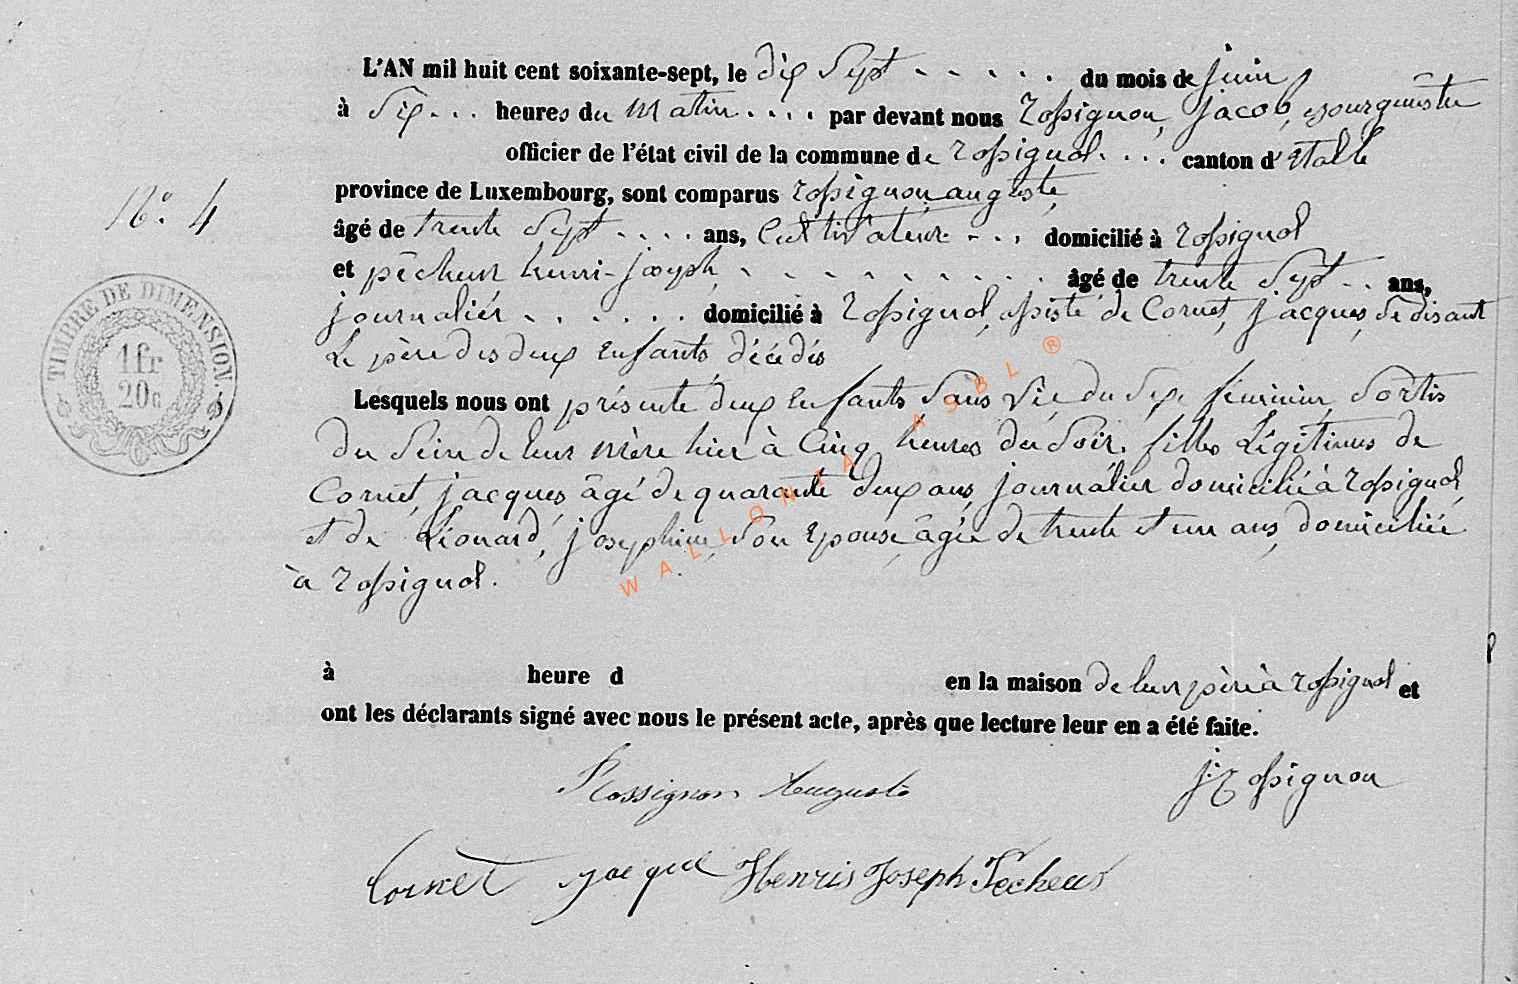 L'AN mil huit cent soixante-sept, le dix Sept - - - - - du mois de juin
à Six - - - heures du Matin - - - - par devant nous Rossignon, jacob, bourguestre
officier de l'état civil de la commune de Rossignol - - - canton d'Etalle
province de Luxembourg, sont comparus Rossignon, auguste,
N° 4
âgé de trente Sept - - - - ans, Cultivateur - - - domicilié à Rossignol
et pêcheur henri-joseph, - - - - - - - - - âgé de trente Sept - - ans,
journaliér - - - - - - domicilié à Rossignol, assisté de Cornet, jacques, se disant
Le père des deux Enfants, décédés
Lesquels nous ont présenté deux Enfants Sans Vie, du Sexe féminin, Sortis
du Sein de leur mère hier à Cinq heures du Soir, filles Légitimes de
Cornet, jacques, âgé de quarante deux ans, journalier domicilié à Rossignol,
et de Léonard, josephine, Son Epouse, âgée de trente et un ans, domiciliée
à Rossignol.
à heure d en la maison de leur père à Rossignol et
ont les déclarants signé avec nous le présent acte, après que lecture leur en a été faite.
Rossignon Auguste
j. Rossignon
Cornet jacque Henris Joseph Pecheur
TIMBRE DE DIMENSION.
1 fr
20c
WALLONIA ASBL ®